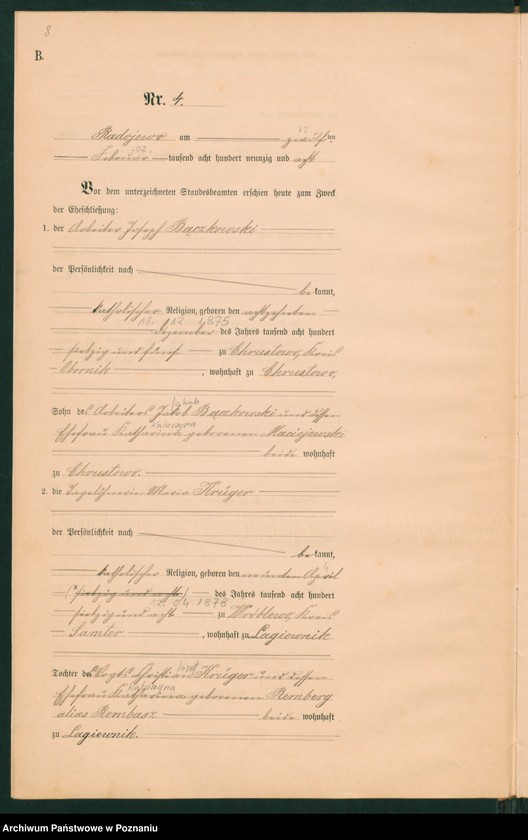 8
B.
Nr. 4.
12
Radojewo am zwölften
02.
Februar tausend acht hundert neunzig und acht
Vor dem unterzeichneten Standesbeamten erschien heute zum Zweck
der Eheschließung:
1. der Arbeiter Joseph Bączkowski
der Persönlichkeit nach
bekannt,
katholischer Religion, geboren den achtzehnten
18. 12 1875
Dezember des Jahres tausend acht hundert
siebzig und fünf zu Chrustowo, Kreis
Obornik, wohnhaft zu Chrustowo,
Jakub
Sohn des Arbeiters Jakob Bączkowski und dessen
Katarzyna
Ehefrau Katharina geborenen Maciejewski
beide wohnhaft
zu Chrustowo.
2. die Tagelöhnerin Maria Krüger
der Persönlichkeit nach
bekannt,
katholischer Religion, geboren den neunten April
(siebzig und acht) des Jahres tausend acht hundert
04. 1878
siebzig und acht zu Wróblewo, Kreis
Samter, wohnhaft zu Lagiewnik
Tochter des Vogts Christian Krüger und dessen
Katarzyna
Ehefrau Katharina geborenen Remberg
alias Rembacz beide wohnhaft
zu Lagiewnik.
Archiwum Państwowe w Poznaniu